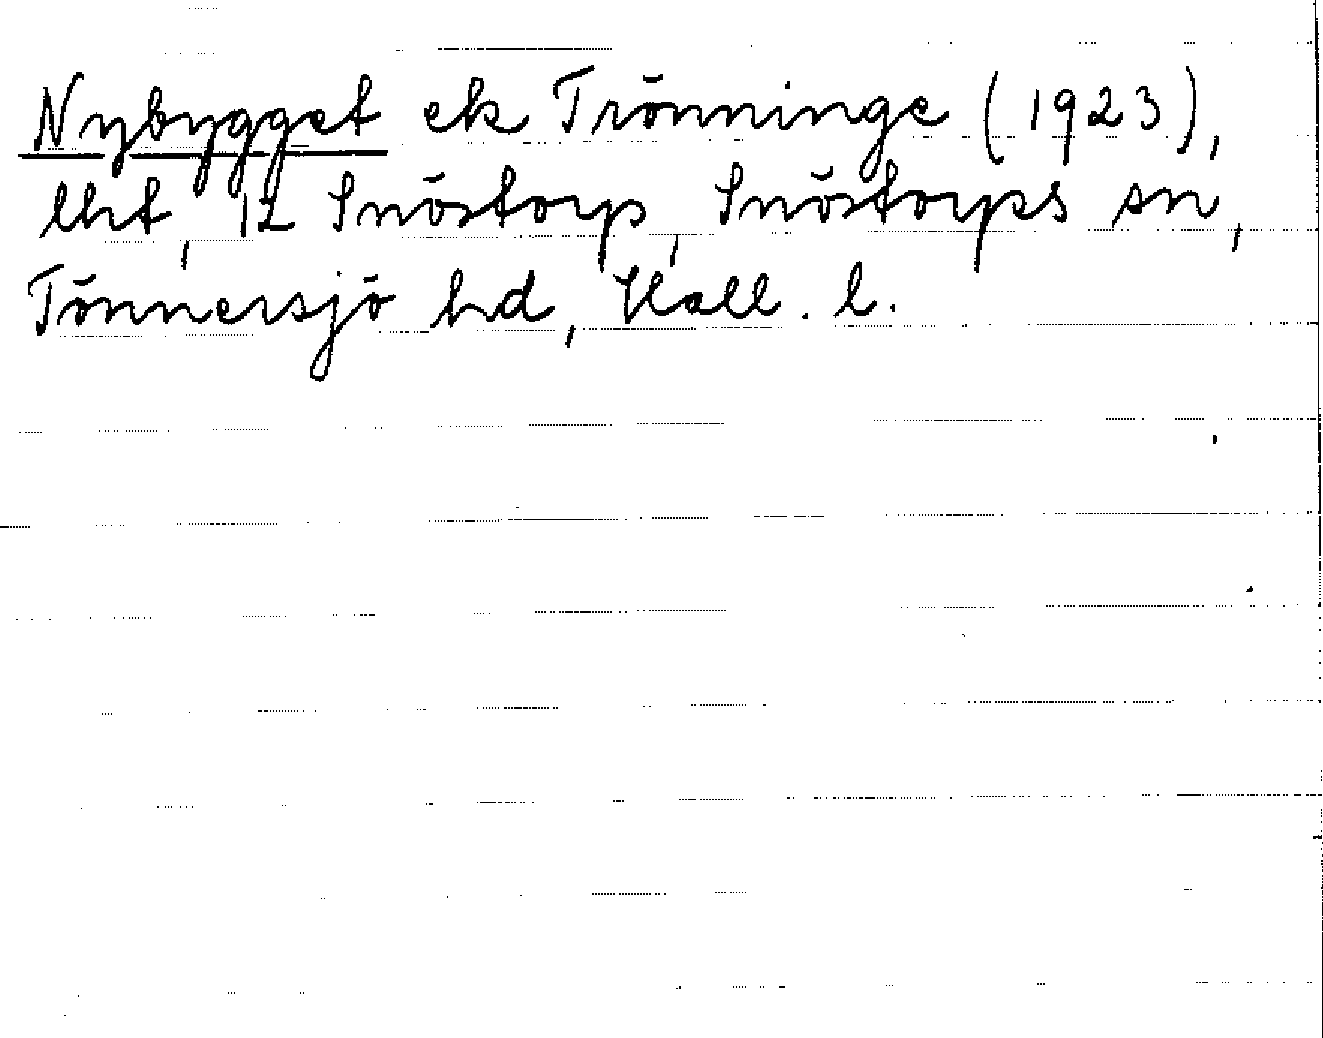 Nybygget ek Trönninge (1923),
lht, 12 Snöstorp, Snöstorps sn,
Tönnersjö hd, Hall. l.